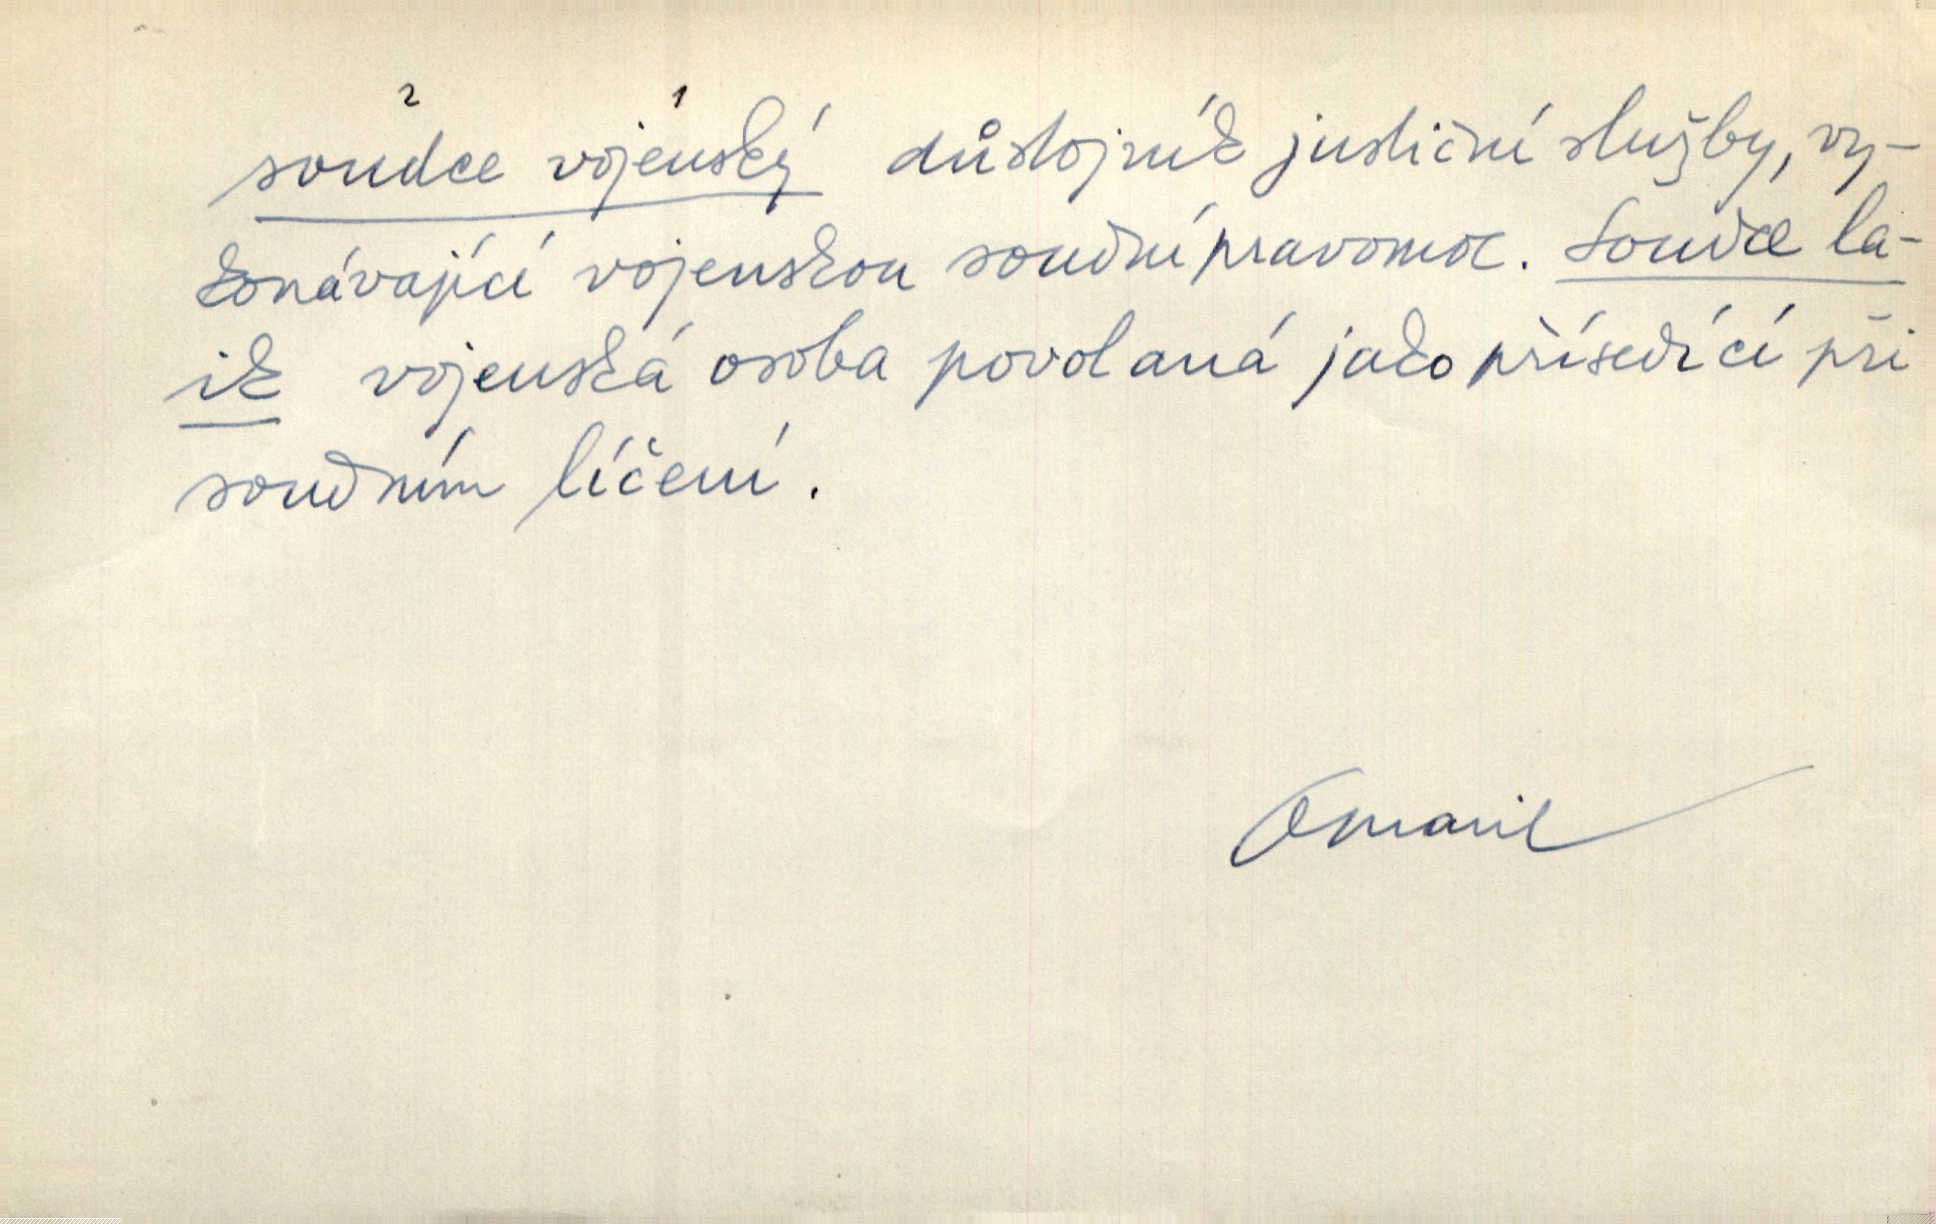 2 1
soudce vojenský důstojník justiční služby, vy-
konávající vojenskou soudní pravomoc. Soudce la-
ik vojenská osoba povolaná jako přísedící při
soudním líčení.